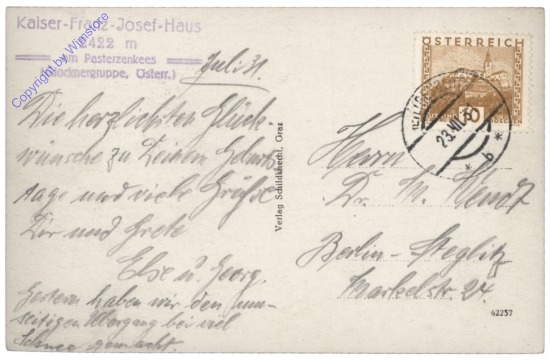 Kaiser-Franz-Josef-Haus
2422 m
am Pasterzenkees
(Glocknergruppe, Österr.)
Copyright by Wimstore
Juli 31.
Die herzlichsten Glück-
wünsche zu Deinem Geburts-
tage und viele Grüße
Dir und Grete
Else u. Georg.
Gestern haben wir den um-
seitigen Übergang bei viel
Schnee gemacht.
Verlag Schildknecht, Graz
ÖSTERREICH
23.VII.31
Herrn
Dr. M. Wendt
Berlin-Steglitz
Markelstr. 24.
42257